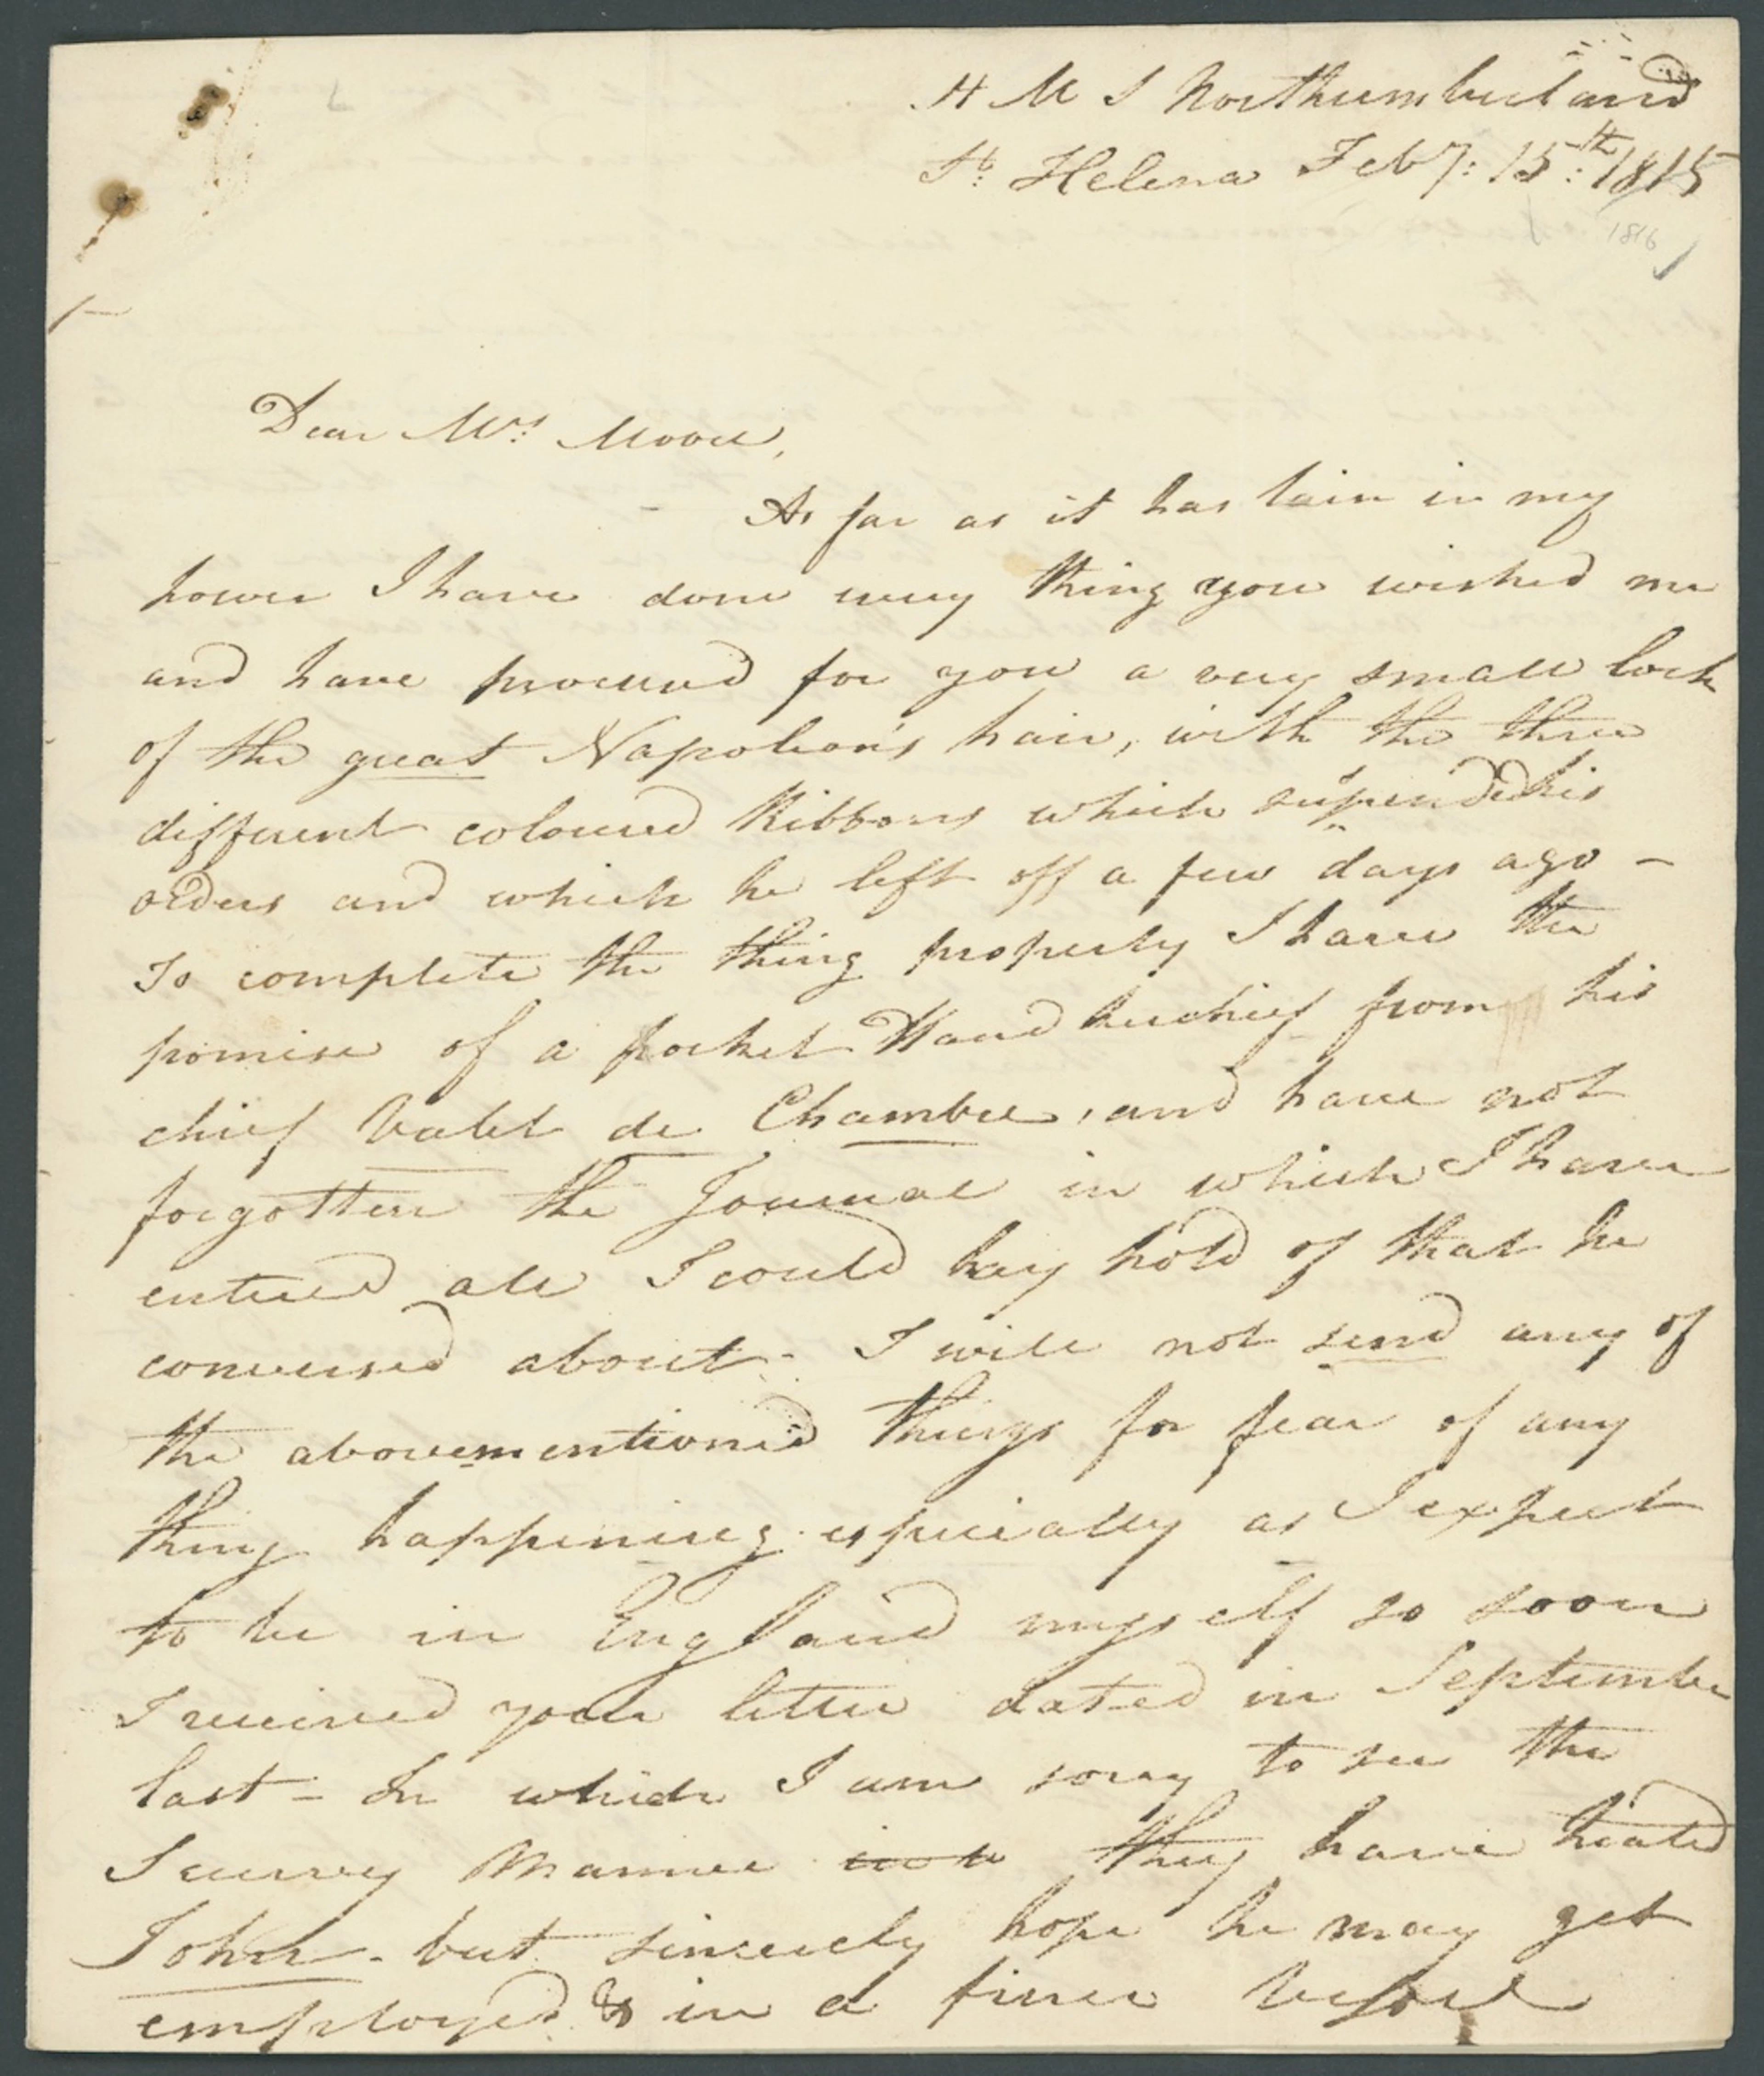 H M S Northumberland
St. Helena Feby: 15th: 1815
1816
Dear Mrs. Moore,
As far as it has lain in my
power I have done every thing you wished me
and have procured for you a very small lock
of the great Napoleon's hair, with the three
different coloured Ribbons which suspended his
orders and which he left off a few days ago -
To complete the thing properly I have the
promise of a pocket Handkerchief from his
chief Valet de Chambre, and have not
forgotten the Journal in which I have
entered all I could lay hold of that he
conversed about - I will not send any of
the abovementioned things for fear of any
thing happening especially as I expect
to be in England myself so soon
I received your letter dated in September
last - In which I am sorry to see the
Scurvy Manner they have treated
John - but sincerely hope he may get
employed & in a finer Vessel